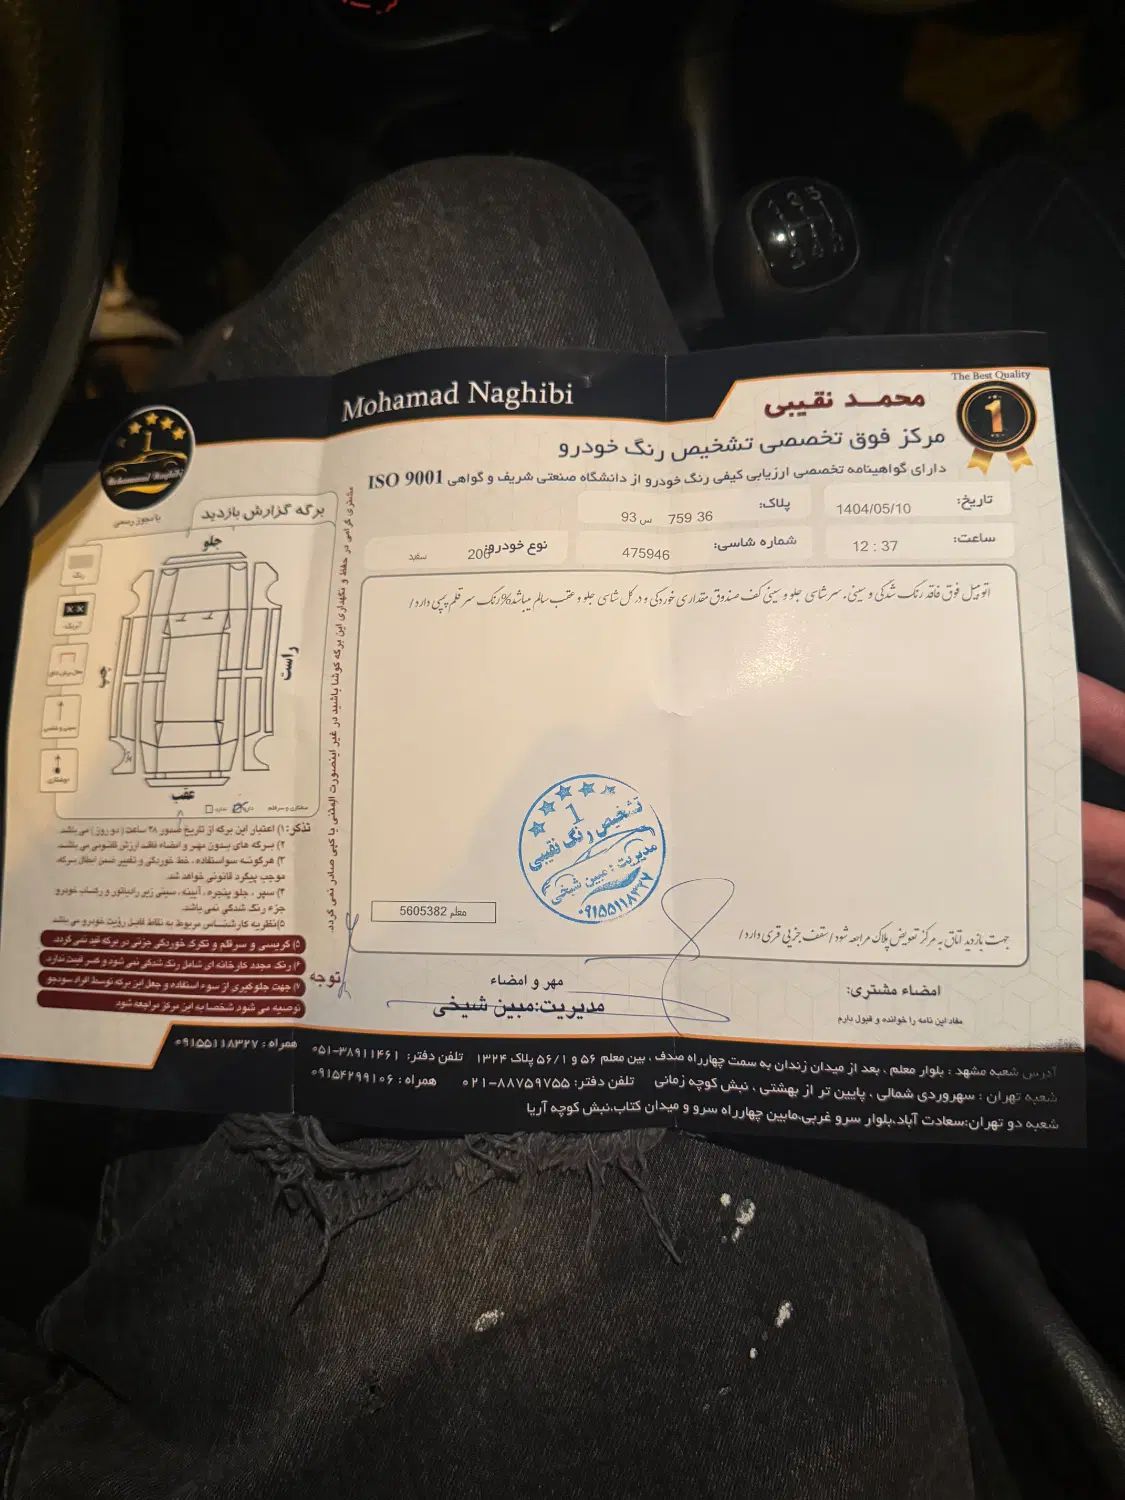 The Best Quality
1
محمـد نقیبی
Mohamad Naghibi
مرکز فوق تخصصی تشخیص رنگ خودرو
دارای گواهینامه تخصصی ارزیابی کیفی رنگ خودرو از دانشگاه صنعتی شریف و گواهی ISO 9001
تاریخ: 1404/05/10
پلاک: 36 759 س 93
ساعت: 12 : 37
شماره شاسی: 475946
نوع خودرو: 206 سفید
اتومبیل فوق فاقد رنگ شدگی و سینی. سرشاسی جلو و سینی کف صندوق مقداری خوردگی و در کل شاسی جلو و عقب سالم میباشد
رنگ سر قلم پیچی دارد/
جهت بازدید اتاق به مرکز تعویض پلاک مراجعه شود/سقف جزیی قری دارد/
معلم 5605382
تشخیص رنگ نقیبی
1
مدیریت: مبین شیخی
۰۹۱۵۵۱۱۸۳۲۷
مهر و امضاء
مدیریت:مبین شیخی
امضاء مشتری:
مفاد این نامه را خوانده و قبول دارم
مشتری گرامی در حفظ و نگهداری این برگه کوشا باشید در غیر اینصورت المثنی یا کپی صادر نمی گردد.
Mohammad Naghibi
با مجوز رسمی
برگه گزارش بازدید
جلو
راست
چپ
عقب
رنگ
صافکاری و سرقلم دارد ندارد
تذکر: ۱) اعتبار این برگه از تاریخ صدور ۴۸ ساعت (دو روز) می باشد.
۲) برگه های بدون مهر و امضاء فاقد ارزش قانونی می باشد.
۳) هرگونه سوءاستفاده ، خط خوردگی و تغییر ضمن ابطال برگه، موجب پیگرد قانونی خواهد شد.
۴) سپر ، جلو پنجره ، آیینه ، سینی زیر رادیاتور و رکساب خودرو جزء رنگ شدگی نمی باشد.
۵) نظریه کارشناس مربوط به نقاط قابل رؤیت خودرو می باشد
توجه
۵) گریسی و سرقلم و تکرک خوردگی جزئی در برگه قید نمی گردد.
۶) رنگ مجدد کارخانه ای شامل رنگ شدگی نمی شود و کسر قیمت ندارد.
۷) جهت جلوگیری از سوء استفاده و جعل این برگه توسط افراد سودجو
توصیه می شود شخصا به این مرکز مراجعه شود
آدرس شعبه مشهد : بلوار معلم ، بعد از میدان زندان به سمت چهارراه صدف ، بین معلم ۵۶ و ۵۶/۱ پلاک ۱۳۲۴ تلفن دفتر: ۳۸۹۱۱۴۶۱-۰۵۱ همراه : ۰۹۱۵۵۱۱۸۳۲۷
شعبه تهران : سهروردی شمالی ، پایین تر از بهشتی ، نبش کوچه زمانی تلفن دفتر: ۸۸۷۵۹۷۵۵-۰۲۱ همراه : ۰۹۱۵۴۲۹۹۱۰۶
شعبه دو تهران:سعادت آباد،بلوار سرو غربی،مابین چهارراه سرو و میدان کتاب،نبش کوچه آریا